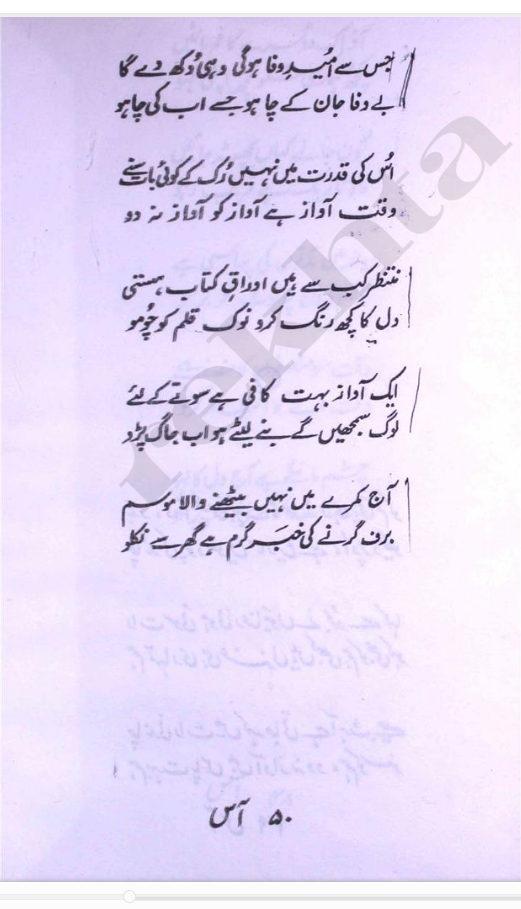 جس سے اُمیدِ وفا ہوگی وہی دُکھ دے گا
بے وفا جان کے چاہو جسے اب کی چاہو
اُس کی قدرت میں نہیں رُک کے کوئی بات سنے
وقت آواز ہے آواز کو آواز نہ دو
منتظر کب سے ہیں اوراقِ کتاب ہستی
دل کا کچھ رنگ کرو نوک قلم کو چُومو
ایک آواز بہت کافی ہے سوتے کے لئے
لوگ سمجھیں گے بنے لیٹے ہو اب جاگ پڑو
آج کمرے میں نہیں بیٹھنے والا موسم
برف گرنے کی خبر گرم ہے گھر سے نکلو
۵۰ آس
rekhta